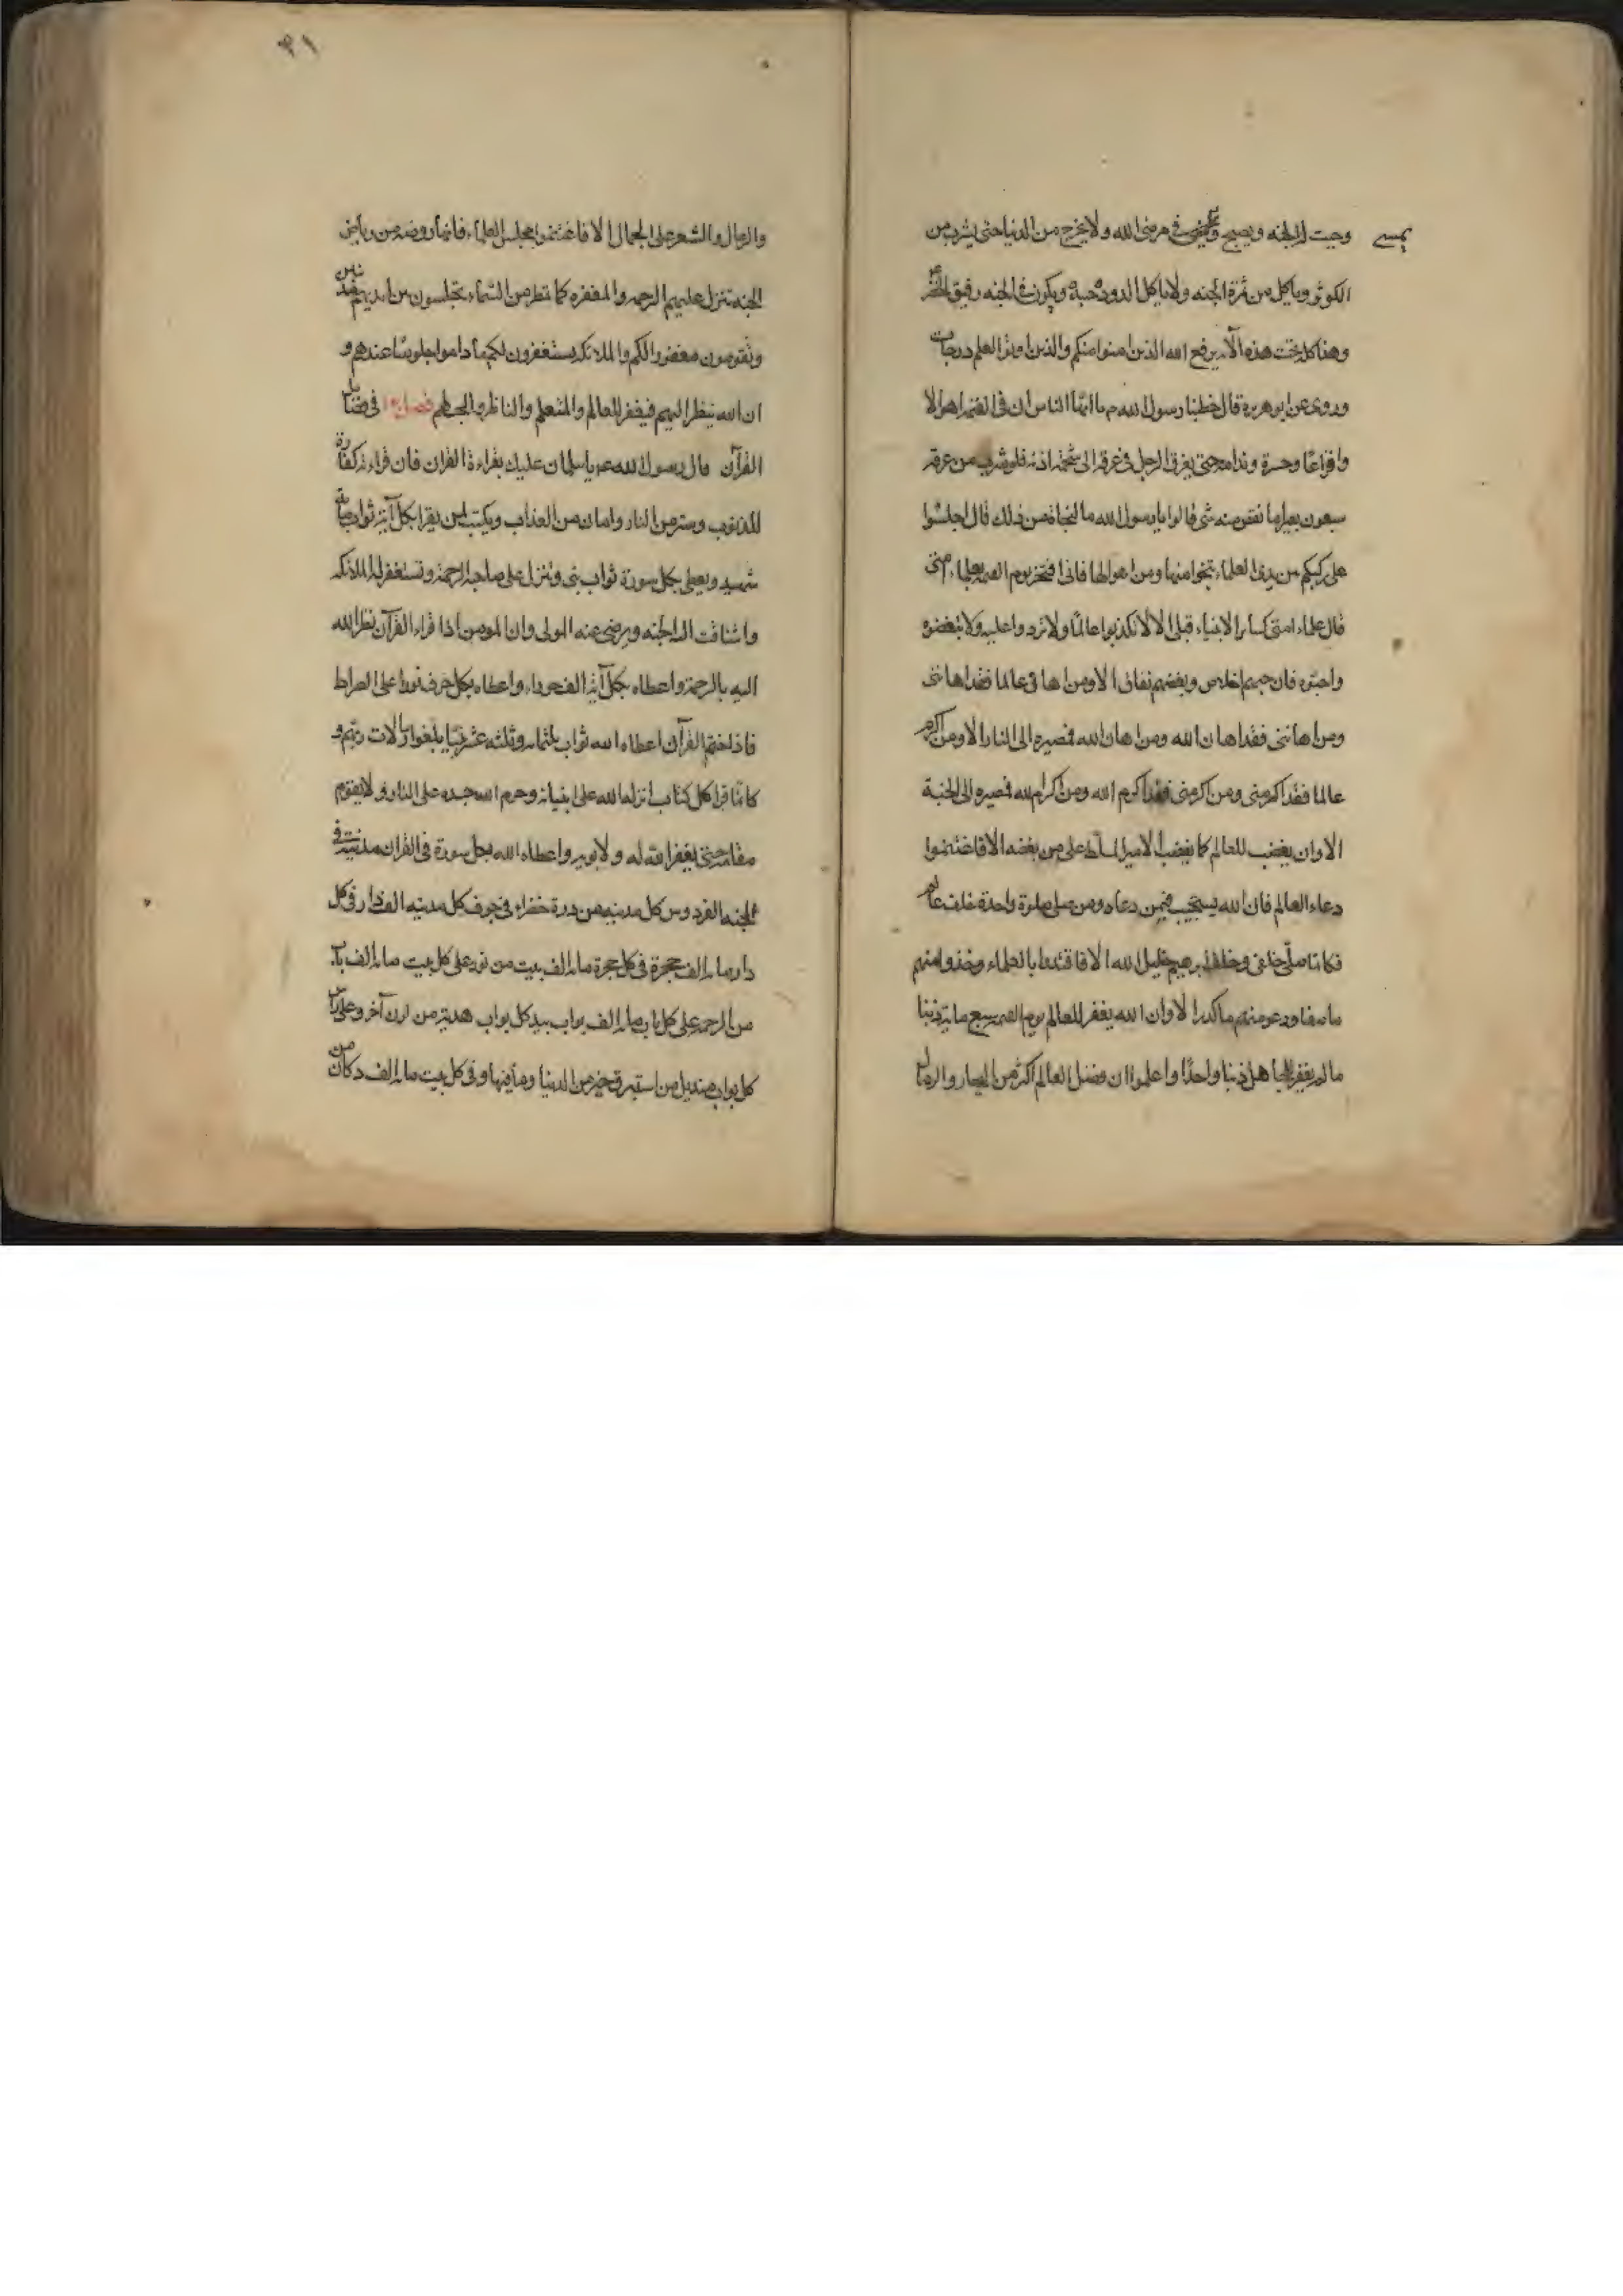 وجبت له الجنه ويصبح ويمسى فى مرضى الله ولا يخرج من الدنيا حتى يشرب من
الكوثر وياكل من ثمرة الجنه ولا ياكل الدود جسده ويكون فى الجنه رفيق الخضر
وهذا كله تحت هذه الآيه يرفع الله الذين امنوا منكم والذين اوتوا العلم درجات
وروى عن ابو هريرة قال خطبنا رسول الله م يا ايها الناس ان فى القيمه اهوالا
وافزاعا وحسرة وندامه حتى يغرق الرجل فى عرقه الى شحمة اذنه فلو شرب من عرقه
سبعون بعيرا ما نقص منه شى قالوا يا رسول الله ما النجاة من ذلك قال اجلسوا
على ركبكم بين يدى العلماء تنجوا منها ومن اهوالها فانى افتخر يوم القيمه بعلماء امتى
قال علماء امتى كسائر الانبياء قبلى الا لا تكذبوا عالما ولا تردوا عليه ولا تبغضوه
واحبوه فان حبهم اخلاص وبغضهم نفاق الا ومن اهان عالما فقد اهاننى
ومن اهاننى فقد اهان الله ومن اهان الله فمصيره الى النار الا ومن اكرم
عالما فقد اكرمنى ومن اكرمنى فقد اكرم الله ومن اكرم الله فمصيره الى الجنة
الا وان يغضب للعالم كما يغضب الامير المسلط على من بغضه الا فاغتنموا
دعاء العالم فان الله يستجيب فيمن دعاه ومن صلى صلوة واحدة خلف عالم
فكانما صلى خلفى وخلف ابرهيم خليل الله الا فاقتدوا بالعلماء وخذوا منهم
ما صفا ودعوا منهم ما كدر الا وان الله يغفر للعالم يوم القيمه سبع مائة ذنبا
ما لم يغفر للجاهل ذنبا واحدًا واعلموا ان فضل العالم اكثر من البحار والرمال
يمسى
٣١
والرمال والشعر على الجمال الا فاغتنموا مجلس العلماء فانها روضه من رياض
الجنه تنزل عليهم الرحمه والمغفره كما تمطر من السماء تجلسون بين ايديهم مذنبين
وتقومون مغفورا لكم والملائكه يستغفرون لكم ما داموا جلوسًا عندهم و
ان الله ينظر اليهم فيغفر للعالم والمتعلم والناظر والمحب لهم فصل فى فضائل
القرآن قال رسول الله عم يا سلمان عليك بقراءة القران فان قراءته كفارة
للذنوب وستر من النار وامان من العذاب ويكتب لمن يقرا بكل آية ثواب مائة
شهيد ويعطى بكل سورة ثواب نبى وتنزل على صاحبه الرحمة وتستغفر له الملائكه
واشتاقت اليه الجنه ويرضى عنه المولى وان المومن اذا قراء القرآن نظر الله
اليه بالرحمة واعطاه بكل آية الف حوراء واعطاه بكل حرف نورا على الصراط
فاذا ختم القرآن اعطاه الله ثواب ثلثمايه وثلثه عشر نبيا بلغوا رسالات ربهم و
كانما قرا كل كتاب انزله الله على انبيائه وحرم الله جسده على النار ولا يقوم
مقامه حتى يغفر الله له ولابويه واعطاه الله بكل سورة فى القران مدينة فى
الجنه الفردوس كل مدينه من درة خضراء فى جوف كل مدينه الف دار فى كل
دار مايه الف حجرة فى كل حجرة مايه الف بيت من نور على كل بيت مايه الف باب
من الرحمه على كل باب مايه الف بواب بيد كل بواب هدية من لون آخر وعلى راس
كل بواب منديل من استبرق خير من الدنيا وما فيها وفى كل بيت مايه الف دكان من